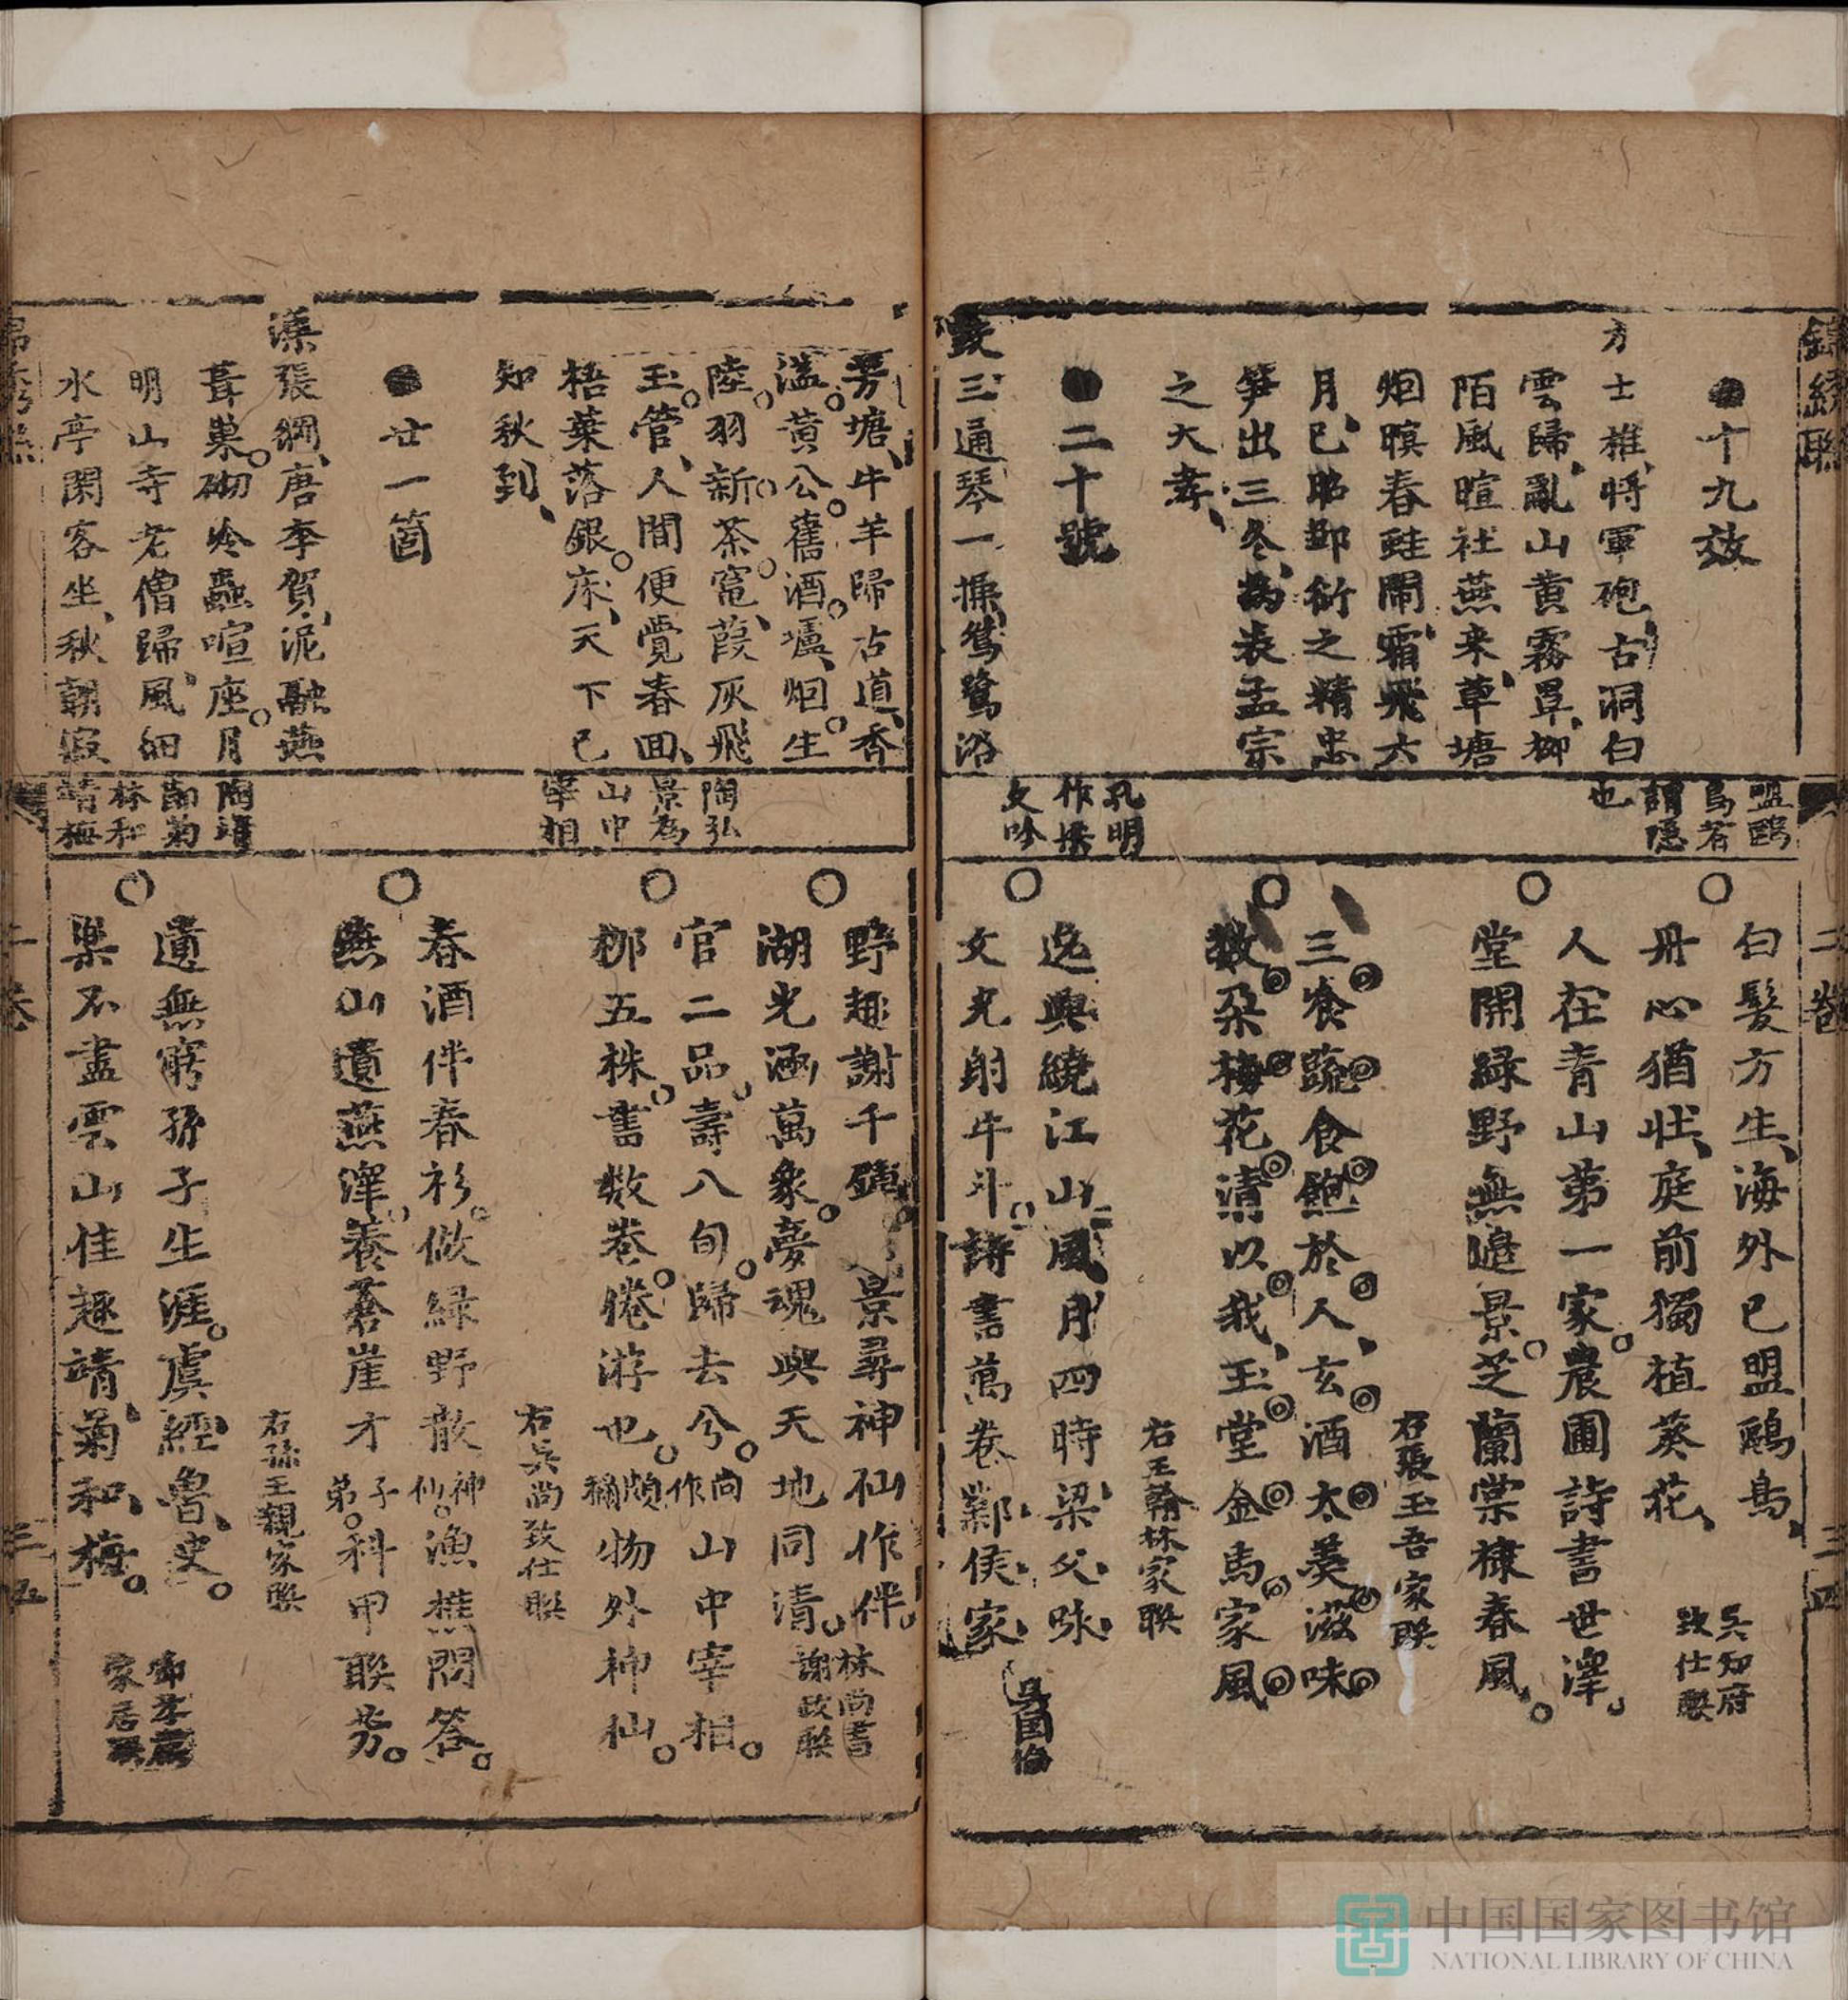 錦綉聯
二卷
三四
●十九效
方士椎、將軍砲、古洞白
雲歸、亂山黃霧罩、柳
陌風暄社燕来、草塘
烟暝春蛙鬧、霜飛六
月、已昭鄒衍之精忠
笋出三冬、爲表孟宗
之大孝、
●二十號
鼓三通琴一操、鴛鷺浴
盟鷗
鳥者
謂隐
也
孔明
作梁
父吟
白髮方生、海外已盟鷗鳥、
丹心猶壯、庭前獨植葵花、
吳知府
致仕聯
人在青山第一家。農圃詩書世澤。
堂開緑野無邉景。芝蘭棠棣春風。
右張玉吾家聯
三飡蔬食飽於人、玄酒太羹滋味
数朶梅花清以我、玉堂金馬家風
右王翰林家聯
逸興繞江山風月四時梁父咏、
文光射牛斗。詩書萬卷鄴侯家、
芳塘、牛羊歸古道、香
滥黃公舊酒壚、烟生
陸羽新茶竃、葭灰飛
玉管、人間便覺春回、
梧葉落銀床、天下已
知秋到、
●廿一箇
漢張綱、唐李賀、泥融燕
葺巢。砌冷蟲喧座。月
明山寺老僧歸、風細
水亭閑客坐、秋朝寂
陶弘
景為
山中
宰相
陶靖
節菊
林和
靖梅
野趣謝千鍾景尋神仙作伴。
湖光涵萬象。夢魂與天地同清。
林尚書
謝政聯
官二品。壽八旬。歸去兮。尚作山中宰相。
柳五株。書数卷。倦游也。頗稱物外神仙。
右吳尚致仕聯
春酒伴春衫。做緑野散神仙。漁樵問答。
燕山遺燕澤。養蒼崖才子弟。科甲聯芳。
右孫王親家聯
遺無窮孫子生涯。虞經魯史。
樂不盡雲山佳趣靖菊、和梅。
二卷
三五